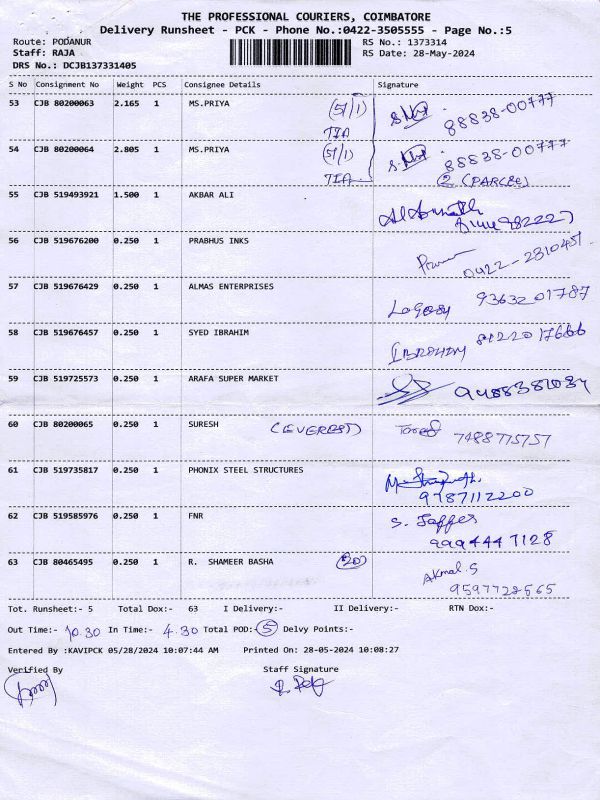 THE PROFESSIONAL COURIERS, COIMBATORE
Delivery Runsheet - PCK - Phone No.:0422-3505555 - Page No.:5
Route: PODANUR RS No.: 1373314
Staff: RAJA RS Date: 28-May-2024
DRS No.: DCJB137331405
S No Consignment No Weight PCS Consignee Details Signature
53 CJB 80200063 2.165 1 MS.PRIYA (51/1) 88838-00777
TIA
54 CJB 80200064 2.805 1 MS.PRIYA (51/1) 88838-00777
TIA 2 (PARCEL)
55 CJB 519493921 1.500 1 AKBAR ALI
56 CJB 519676200 0.250 1 PRABHUS INKS 0422-2310451
57 CJB 519676429 0.250 1 ALMAS ENTERPRISES 9363201787
58 CJB 519676457 0.250 1 SYED IBRAHIM IBRAHIM 8122017666
59 CJB 519725573 0.250 1 ARAFA SUPER MARKET
60 CJB 80200065 0.250 1 SURESH (EVEREST) 7488775757
61 CJB 519735817 0.250 1 PHONIX STEEL STRUCTURES
9787112200
62 CJB 519585976 0.250 1 FNR S. Jaffer
9994447128
63 CJB 80465495 0.250 1 R. SHAMEER BASHA (20) Akmal.S
9597728565
Tot. Runsheet:- 5 Total Dox:- 63 I Delivery:- II Delivery:- RTN Dox:-
Out Time:- 10.30 In Time:- 4.30 Total POD: 5 Delvy Points:-
Entered By :KAVIPCK 05/28/2024 10:07:44 AM Printed On: 28-05-2024 10:08:27
Verified By Staff Signature